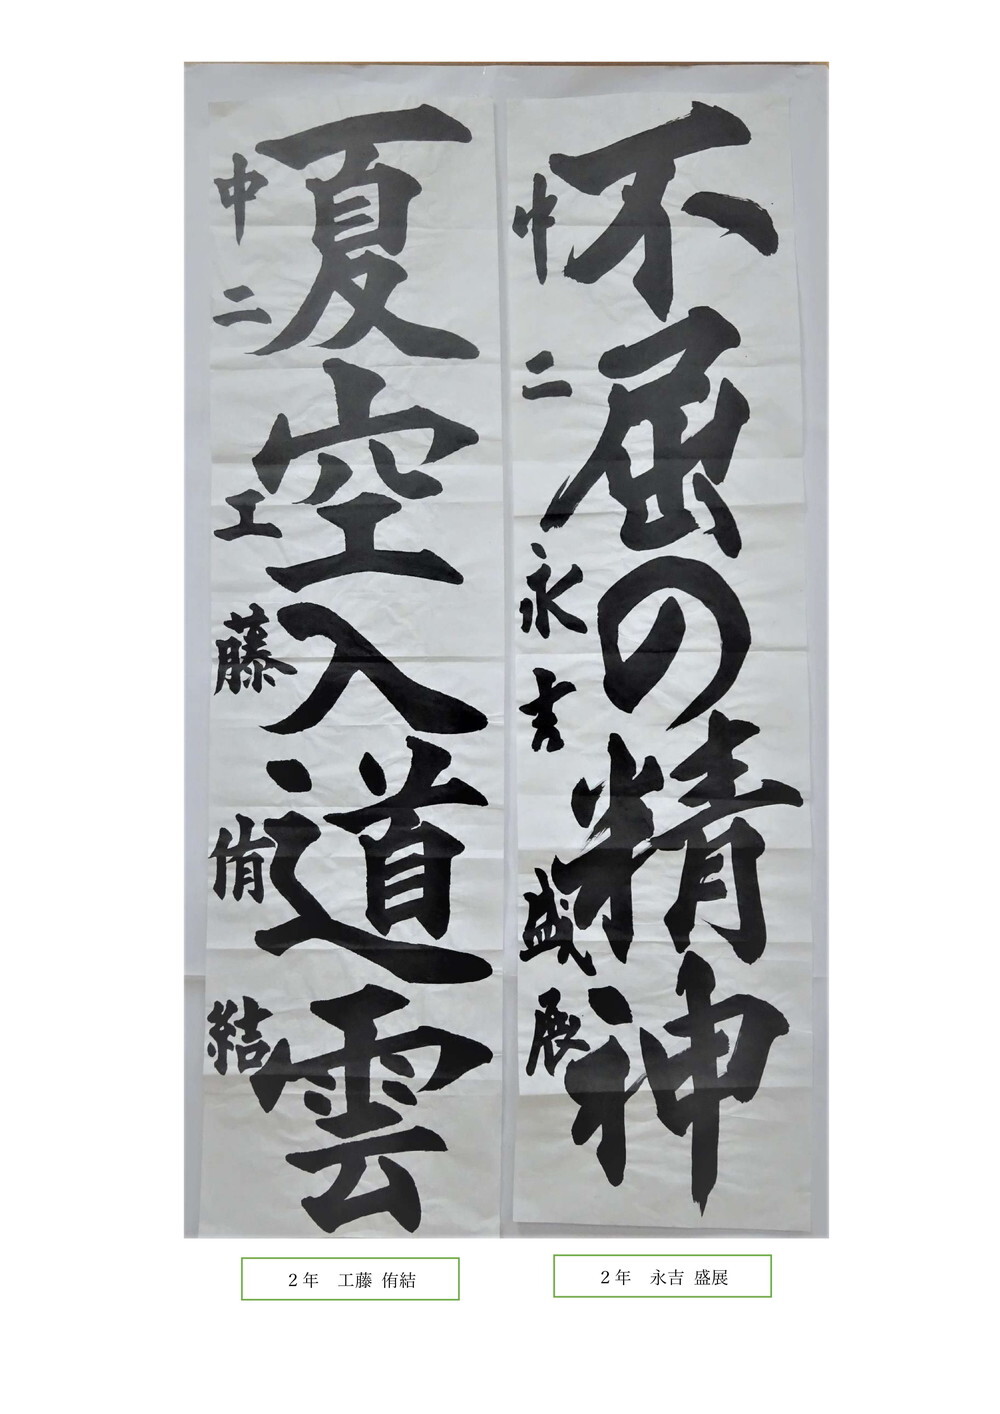 不屈の精神
中二 永吉盛展
夏空入道雲
中二 工藤侑結
２年　工藤 侑結
２年　永吉 盛展